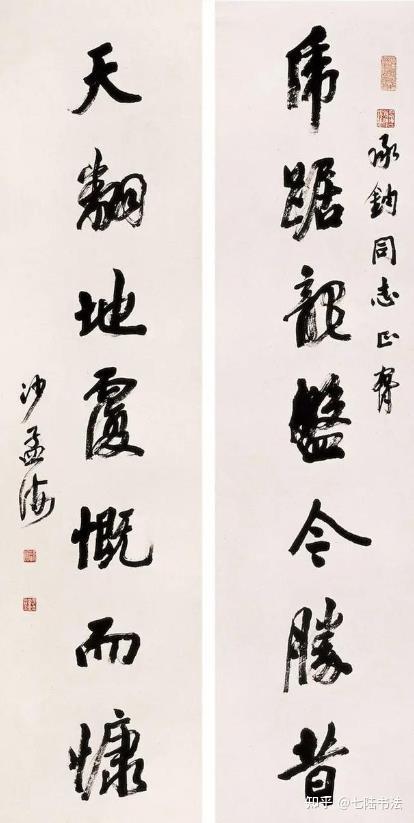 承鈞同志正
虎踞龍盤今勝昔
天翻地覆慨而慷
沙孟海
知乎 @七陆书法